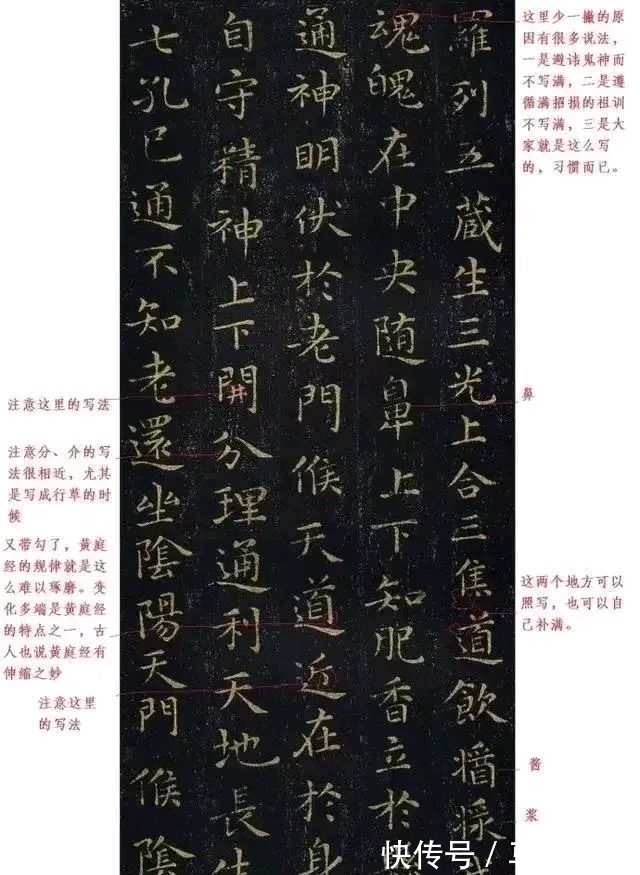 羅列五藏生三光上合三焦道飲醬漿
魂魄在中央随鼻上下知肥香立於
通神明伏於老門候天道近在於身
自守精神上下開分理通利天地長生
七孔已通不知老還坐陰陽天門候陰
这里少一撇的原
因有很多说法，
一是避讳鬼神而
不写满，二是遵
循满招损的祖训
不写满，三是大
家就是这么写
的，习惯而已。
鼻
这两个地方可以
照写，也可以自
己补满。
酱
浆
注意这里的写法
注意分、介的写
法很相近，尤其
是写成行草的时
候
又带勾了，黄庭
经的规律就是这
么难以琢磨。变
化多端是黄庭经
的特点之一，古
人也说黄庭经有
伸缩之妙
注意这里
的写法
快传号 /